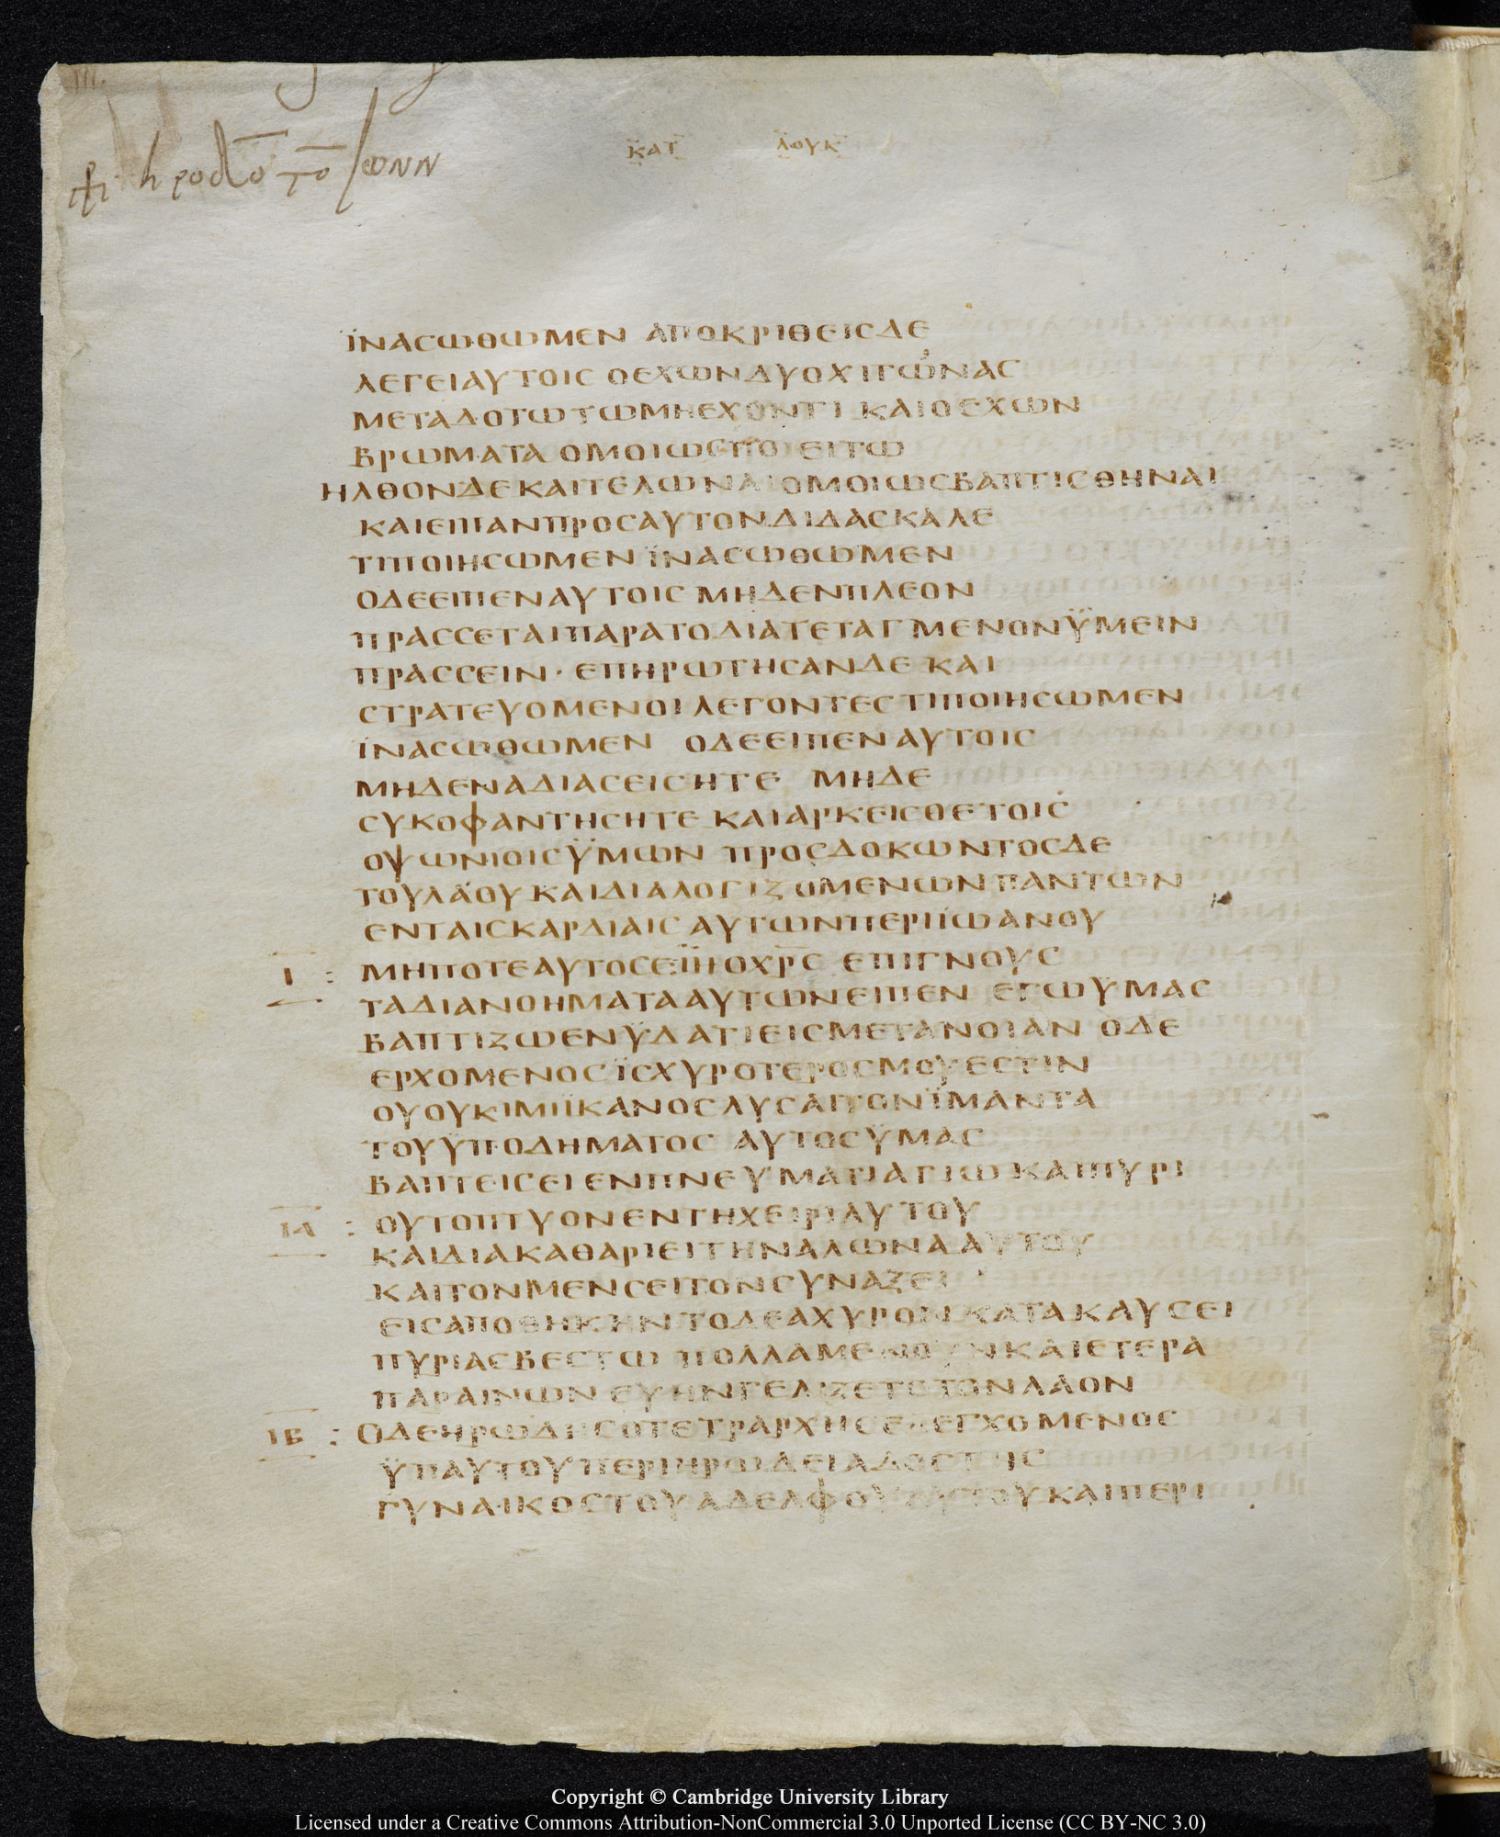 ΚΑΤ ΛΟΥΚ
ΪΝΑCΩΘΩΜΕΝ ΑΠΟΚΡΙΘΕΙCΔΕ
ΛΕΓΕΙΑΥΤΟΙC ΟΕΧΩΝΔΥΟΧΙΤΩΝΑC
ΜΕΤΑΔΟΤΩΤΩΜΗΕΧΟΝΤΙ ΚΑΙΟΕΧΩΝ
ΒΡΩΜΑΤΑ ΟΜΟΙΩCΠΟΙΕΙΤΩ
ΗΛΘΟΝΔΕΚΑΙΤΕΛΩΝΑΙΟΜΟΙΩCΒΑΠΤΙCΘΗΝΑΙ
ΚΑΙΕΙΠΑΝΠΡΟCΑΥΤΟΝΔΙΔΑCΚΑΛΕ
ΤΙΠΟΙΗCΩΜΕΝ ΪΝΑCΩΘΩΜΕΝ
ΟΔΕΕΙΠΕΝΑΥΤΟΙC ΜΗΔΕΝΠΛΕΟΝ
ΠΡΑCCΕΤΑΙΠΑΡΑΤΟΔΙΑΤΕΤΑΓΜΕΝΟΝΫΜΕΙΝ
ΠΡΑCCΕΙΝ · ΕΠΗΡΩΤΗCΑΝΔΕ ΚΑΙ
CΤΡΑΤΕΥΟΜΕΝΟΙ ΛΕΓΟΝΤΕC ΤΙΠΟΙΗCΩΜΕΝ
ΪΝΑCΩΘΩΜΕΝ ΟΔΕΕΙΠΕΝΑΥΤΟΙC
ΜΗΔΕΝΑΔΙΑCΕΙCΗΤΕ ΜΗΔΕ
CΥΚΟΦΑΝΤΗCΗΤΕ ΚΑΙΑΡΚΕΙCΘΕΤΟΙC
ΟΨΩΝΙΟΙCΫΜΩΝ ΠΡΟCΔΟΚΩΝΤΟCΔΕ
ΤΟΥΛΑΟΥ ΚΑΙΔΙΑΛΟΓΙΖΟΜΕΝΩΝΠΑΝΤΩΝ
ΕΝΤΑΙCΚΑΡΔΙΑΙC ΑΥΤΩΝΠΕΡΙΪΩΑΝΟΥ
Ι : ΜΗΠΟΤΕΑΥΤΟCΕΙΗΟΧΡC ΕΠΙΓΝΟΥC
ΤΑΔΙΑΝΟΗΜΑΤΑΑΥΤΩΝΕΙΠΕΝ ΕΓΩΫΜΑC
ΒΑΠΤΙΖΩΕΝΫΔΑΤΙΕΙCΜΕΤΑΝΟΙΑΝ ΟΔΕ
ΕΡΧΟΜΕΝΟC ΪCΧΥΡΟΤΕΡΟCΜΟΥΕCΤΙΝ
ΟΥΟΥΚΙΜΙΪΚΑΝΟCΛΥCΑΙΤΟΝΪΜΑΝΤΑ
ΤΟΥΫΠΟΔΗΜΑΤΟC ΑΥΤΟCΫΜΑC
ΒΑΠΤΕΙCΕΙ ΕΝΠΝΕΥΜΑΤΙΑΓΙΩ ΚΑΙΠΥΡΙ
ΙΑ : ΟΥΤΟΠΤΥΟΝΕΝΤΗΧΕΙΡΙΑΥΤΟΥ
ΚΑΙΔΙΑΚΑΘΑΡΙΕΙΤΗΝΑΛΩΝΑΑΥΤΟΥ
ΚΑΙΤΟΝΜΕΝCΕΙΤΟΝCΥΝΑΞΕΙ
ΕΙCΑΠΟΘΗΚΗΝΤΟΔΕΑΧΥΡΟΝ ΚΑΤΑΚΑΥCΕΙ
ΠΥΡΙΑCΒΕCΤΩ ΠΟΛΛΑΜΕΝΟΥΝΚΑΙΕΤΕΡΑ
ΠΑΡΑΙΝΩΝ ΕΥΗΝΓΕΛΙΖΕΤΟΤΟΝΛΑΟΝ
ΙΒ : ΟΔΕΗΡΩΔΗCΟΤΕΤΡΑΡΧΗCΕΛΕΓΧΟΜΕΝΟC
ΫΠΑΥΤΟΥΠΕΡΙΗΡΩΔΕΙΑΔΟCΤΗC
ΓΥΝΑΙΚΟCΤΟΥΑΔΕΛΦΟΥΑΥΤΟΥΚΑΙΠΕΡΙ
Copyright © Cambridge University Library
Licensed under a Creative Commons Attribution-NonCommercial 3.0 Unported License (CC BY-NC 3.0)